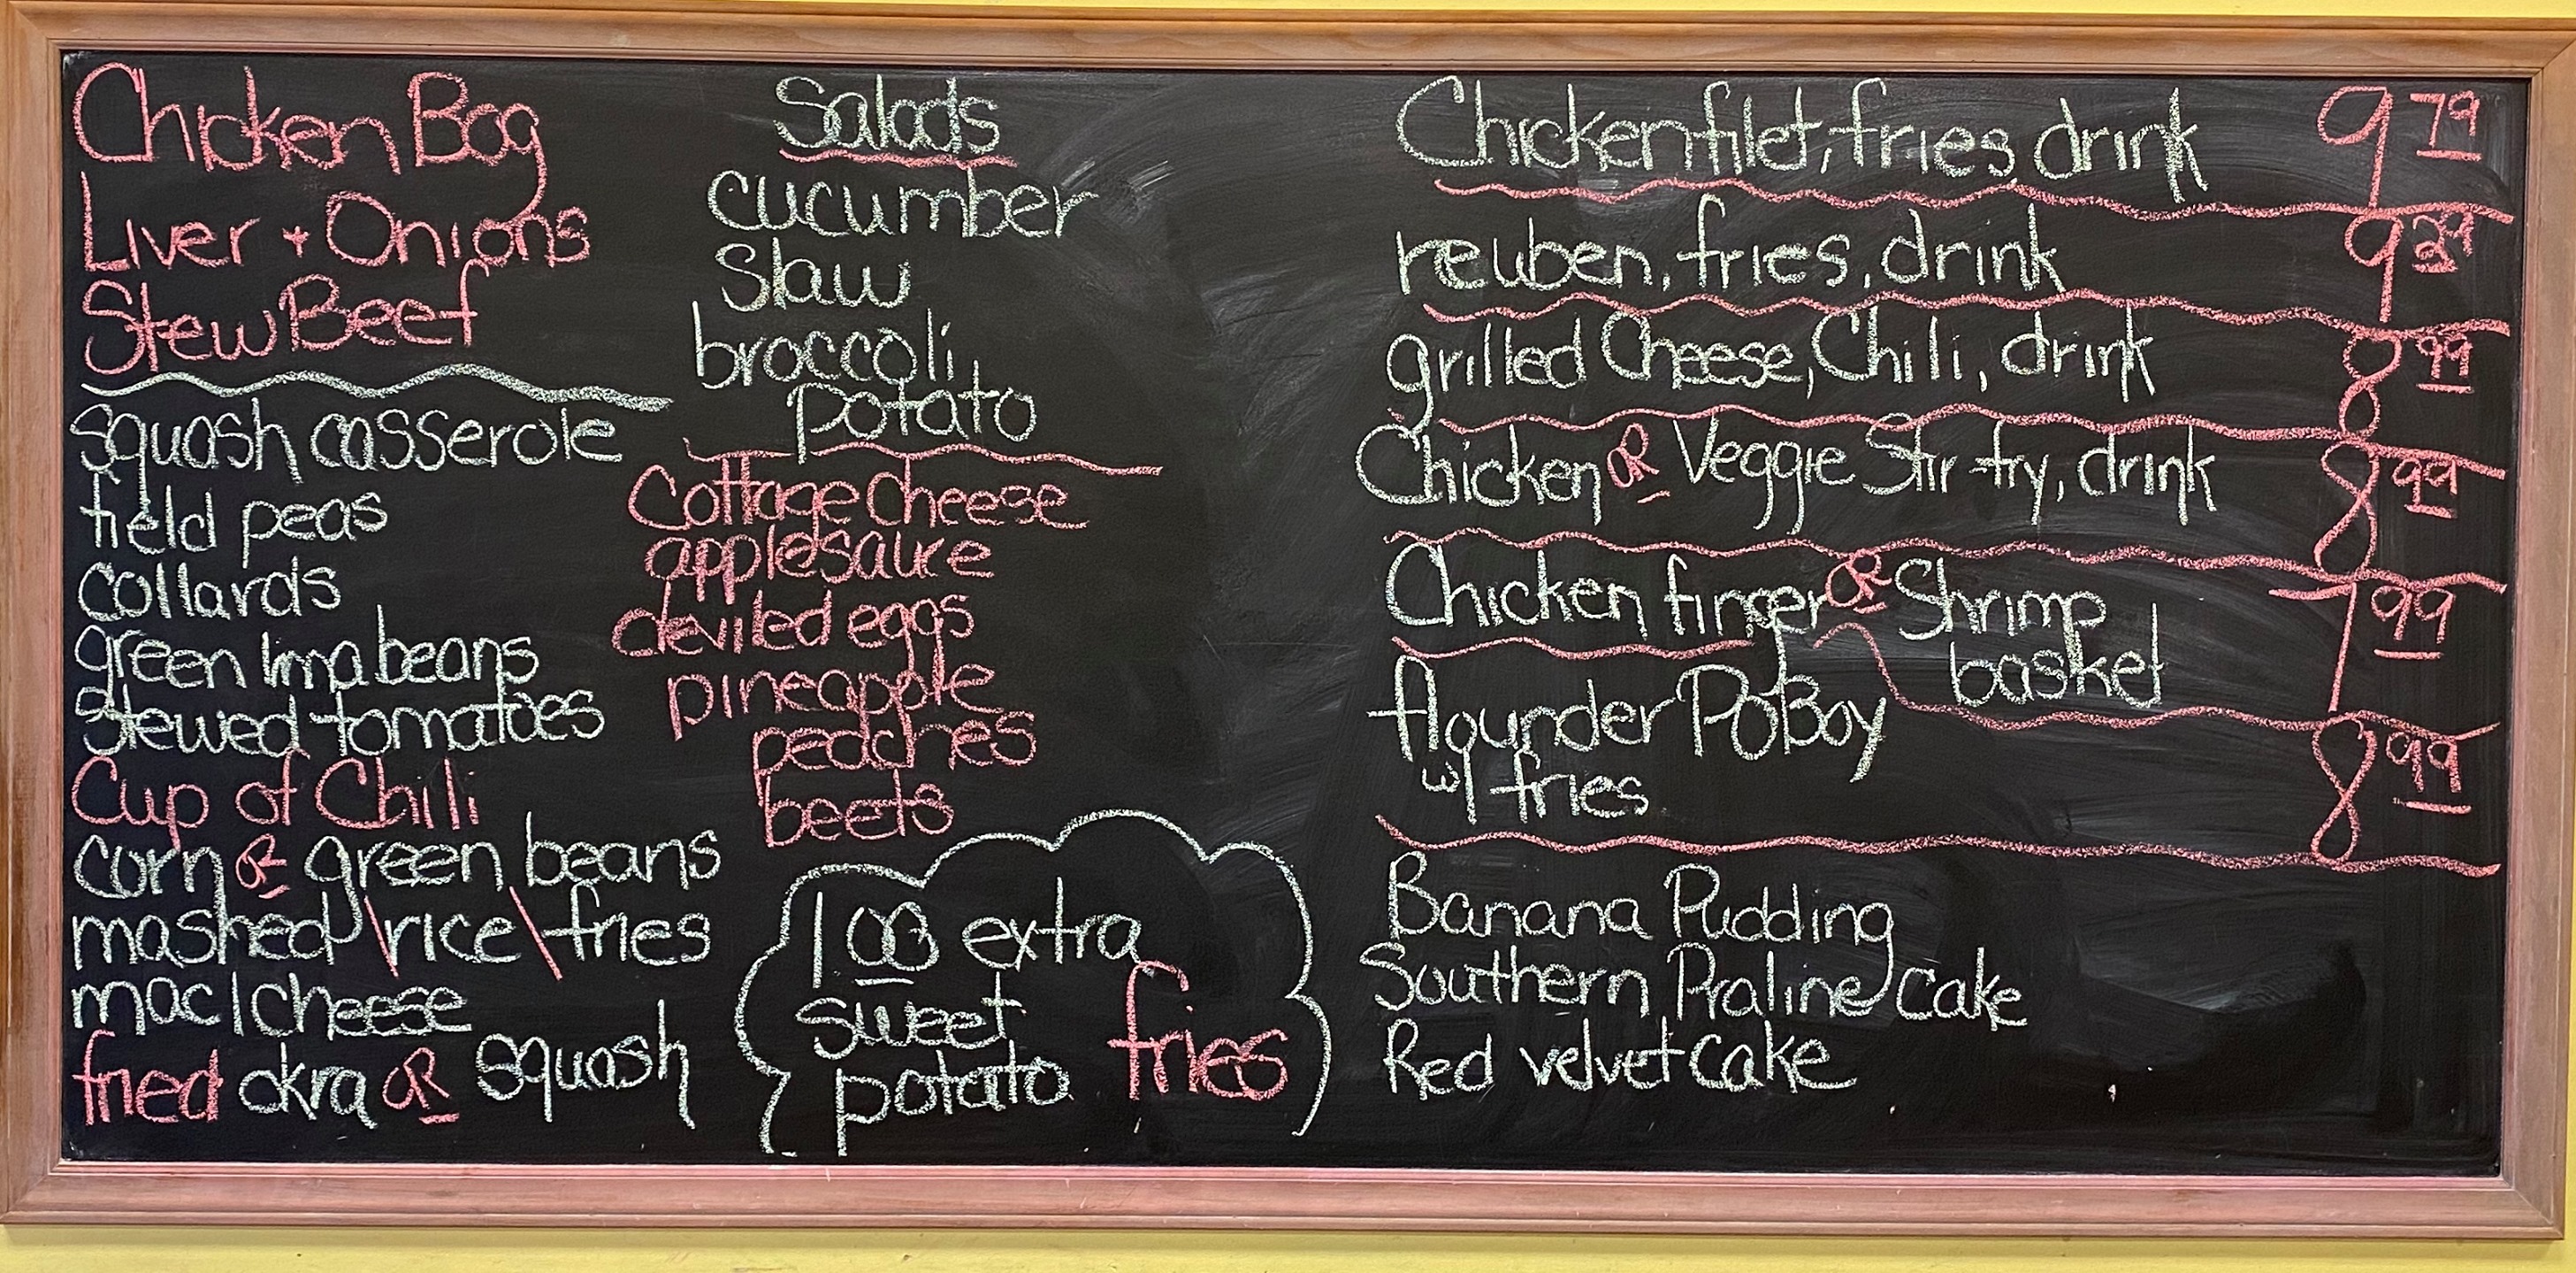 Chicken Bog
Liver + Onions
Stew Beef
squash casserole
field peas
collards
green lima beans
stewed tomatoes
Cup of Chili
corn OR green beans
mashed \ rice \ fries
mac | cheese
fried okra OR squash
Salads
cucumber
Slaw
broccoli
potato
Cottage cheese
applesauce
deviled eggs
pineapple
peaches
beets
1 00 extra
sweet
potato fries
Chicken filet, fries, drink 9 79
reuben, fries, drink 9 29
grilled Cheese, Chili, drink 8 99
Chicken OR Veggie Stir fry, drink 8 99
Chicken finger OR Shrimp 7 99
basket
flounder PoBoy 8 99
w/ fries
Banana Pudding
Southern Praline Cake
Red velvet Cake